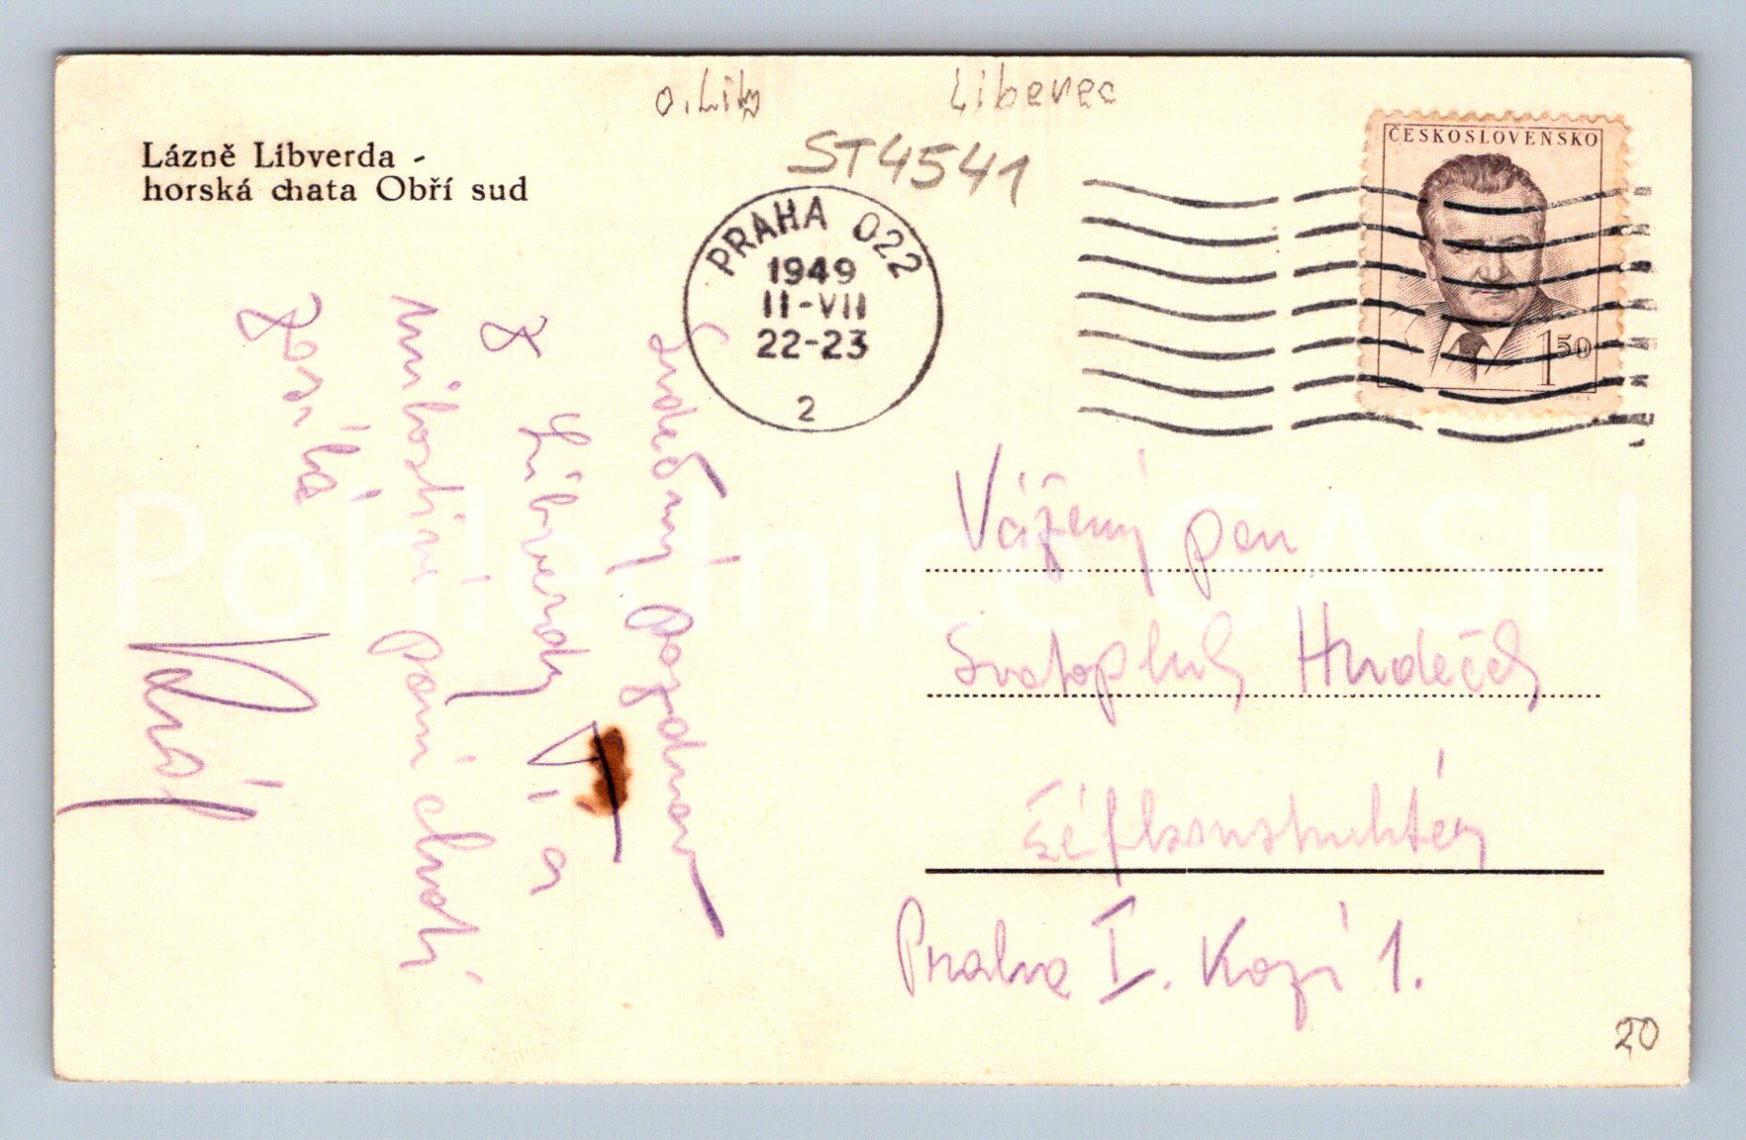 o. Lib
Liberec
ST4541
Lázně Libverda -
horská chata Obří sud
ČESKOSLOVENSKO
1 50
PRAHA 022
1949
11-VII
22-23
2
Srdečný pozdrav
z Libverdy Ví a
milostivé paní choti
zasílá
Vážený pan
Svatopluk Hudeček
šéfkonstruktér
Praha I. Kozí 1.
20
Pohlednice GASH